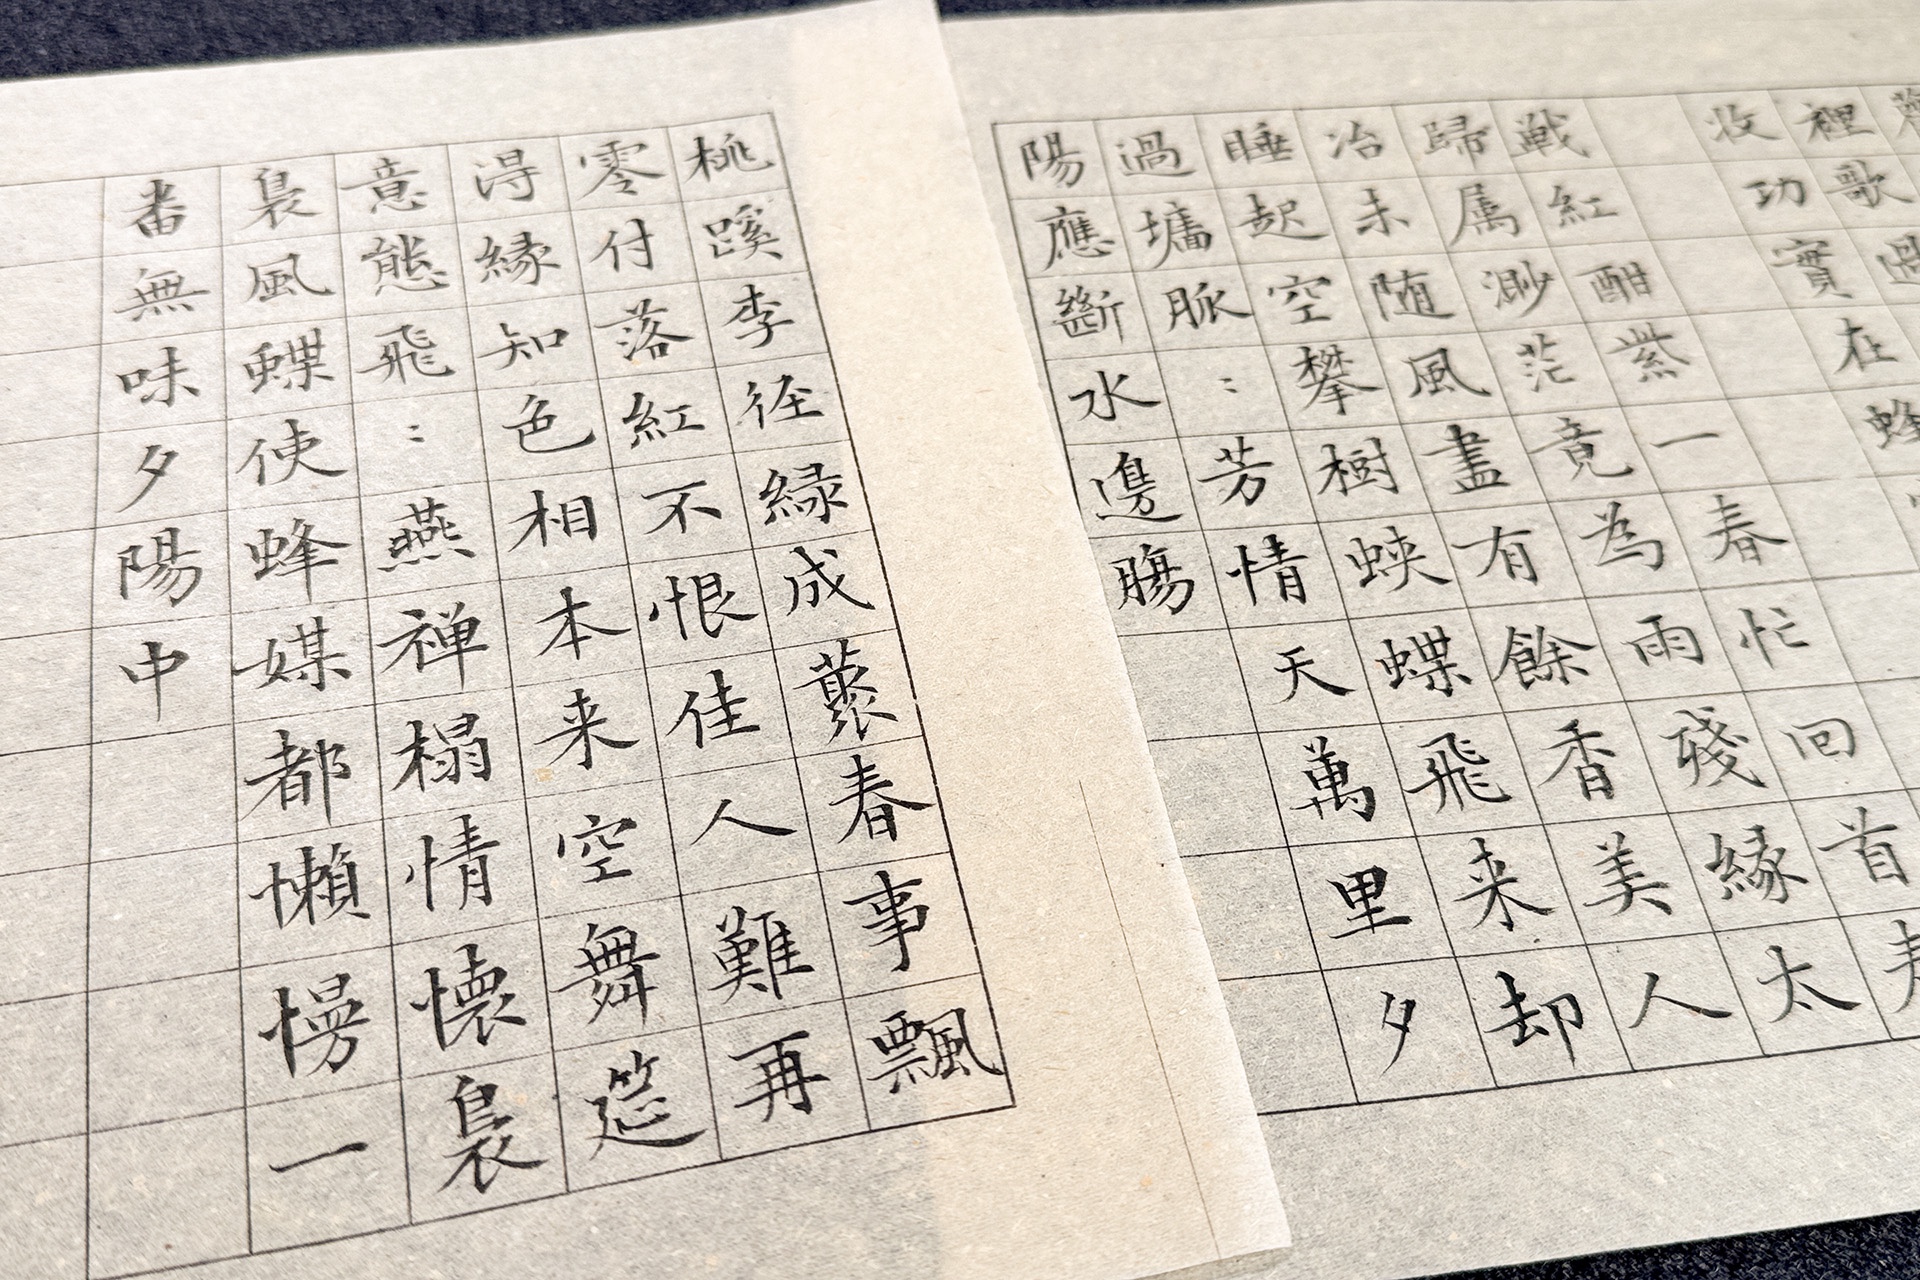 裡歌過
收功實在蜂
戦紅酣紫一春忙回首春
歸属渺茫竟為雨殘緣太
冶未随風盡有餘香美人
睡起空攀樹蛺蝶飛来却
過墉脈〻芳情天萬里夕
陽應斷水邊腸
桃蹊李径緑成叢春事飄
零付落紅不恨佳人難再
得緣知色相本来空舞筵
意態飛〻燕禅榻情懐裊
裊風蝶使蜂媒都懶慢一
番無味夕陽中